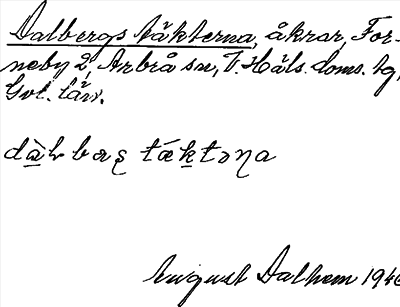 Dalbergs täkterna, åkrar, For-
neby 2, Arbrå sn, V. Häls. doms. tg,
Gvl. län.
dàlbærs tæktəɳa
August Dalhem 1940